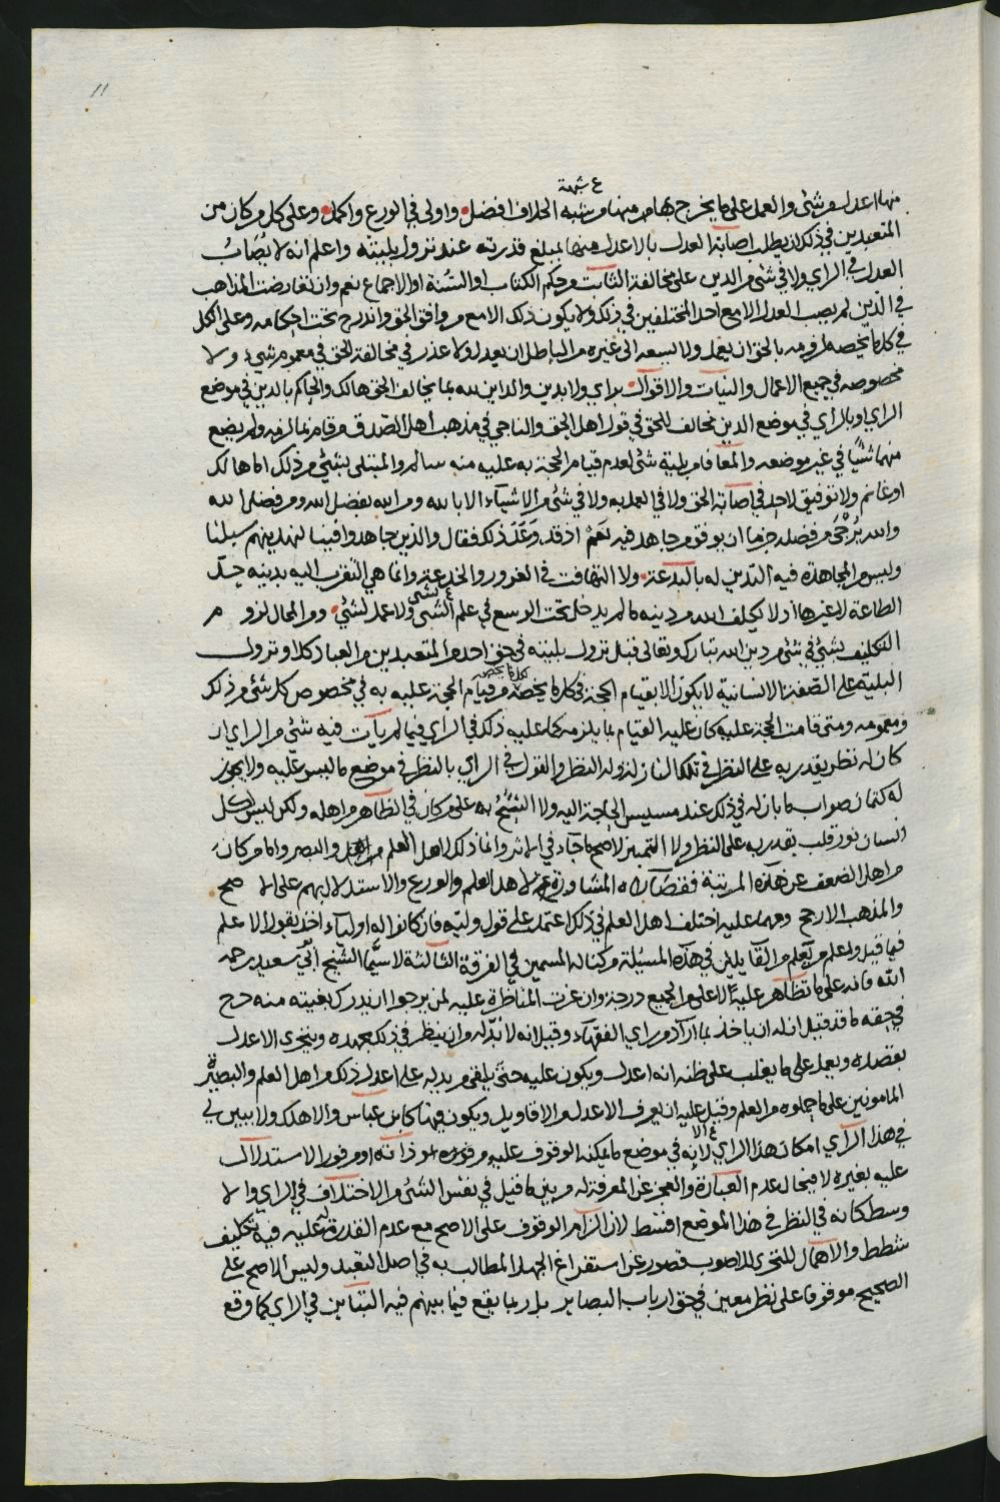 11
ع شبهة
منها اعدل من شئ والعمل على ما يخرج بها من منها من شبه الخلاف افضل واولى في الورع واكمل وعلى كل من كان من
المتعبدين في ذلك ان يطلب اصابة العدل بالاعدل منها بمبلغ قدرته عند نزول بليته واعلم انه لا يصاب
العدل في الراي ولا في شئ من الدين على مخالفة الثابت من حكم الكتاب او السنة او الاجماع نعم وان تعارضت المذاهب
في الدين لم يصب العدل الا مع احد المختلفين في ذلك ولا يكون ذلك الا مع من وافق الحق واندرج تحت احكامه وعلى الكل
في كل ما يخصه لزومه بالحق ان يعمل ولا يسعه الى غيره من الباطل ان يعدل ولا عذر في مخالفة الحق في عموم شئ ولا
مخصوصه في جميع الاعمال والنيات والاقوال براي ولا بدين والداين لله بما يخالف الحق هالك والحاكم بالدين في موضع
الراي او بالراي في موضع الدين مخالف للحق في قول اهل الحق والناجي في مذهب اهل الصدق من قام بما لزمه ولم يضع
منهما شيئا في غير موضعه والمعافا من بلية شئ لعدم قيام الحجة به عليه منه سالم والمبتلى بشئ من ذلك اما هالك
او غانم ولا توفيق لاحد في اصابة الحق ولا في العمل به ولا في شئ من الاشياء الا بالله ومن الله بفضل الله ومن فضل الله
والله يرجى من فضله جزما ان يوفق من جاهد فيه نعم اذ قد وعد ذلك فقال والذين جاهدوا فينا لنهدينهم سبلنا
وليس من المجاهدة فيه التدين له بالبدعة ولا التهافت في الغرور والخدعة وانما هي التقرب اليه بدينه جد
الطاعة لا غيرها اذ لا يكلف الله من دينه ما لم يدخل تحت الوسع في علم الشئ ولا عمل لشئ ومن المحال لزوم
التكليف بشئ في شئ من دين الله تبارك وتعالى قبل نزول بليته في حق احد من المتعبدين من العباد كلا ونزول
البلية على الصفة الانسانية لا يكون الا بقيام الحجة في كل ما يخصه من قيام الحجة عليه به في مخصوص كل شئ من ذلك
وعمومه ومتى قامت الحجة عليه كان عليه القيام بما يلزمه كما عليه ذلك في الراي فيما لم يأت فيه شئ من الراي ان
كان له نظر يقدر به على النظر في تلك النازلة وله النظر والقول في الراي بالنظر في موضع ما ليس عليه ولا يجوز
له كتمان صواب ما بان له في ذلك عند مسيس الحاجة اليه ولا الشح به على من كان في الظاهر من اهله ولكن ليس لكل
انسان نور قلب يقدر به على النظر ولا التمييز لاصح ما جاء في الاثر وانما ذلك لاهل العلم من اهل والبصر واما من كان
من اهل الضعف عن هذه المرتبة فقصاراه المشاورة لاهل العلم والورع والاستدلال بهم على الاصح
والمذهب الارجح ومهما عليه اختلف اهل العلم في ذلك اعتمد على قول وليه فان كانوا له اولياء اخذ بقول الاعلم
فيما قيل ولا علم من يعلم من القايلين في هذه المسئلة من كتاله المسمين في الفرقة الثالثة لاسيما الشيخ ابي سعيد رحمه
الله فانه على ما تظاهر عليه الاعلى من الجميع درجة وان عزت المناظرة عليه لمن يرجوا ان يدرك بغيته منه خرج
في حقه ما قد قيل ان له ان ياخذ بما اراد من راي الفقهاء وقيل انه لا بد له من ان ينظر في ذلك بجهده ويتحرى الاعدل
بقصده ويعمل على ما يغلب على ظنه انه اعدل ويكون عليه حتى يلقى من يدله على اعدل ذلك من اهل العلم والبصيرة
المامونين على ما حملوه من العلم وقيل عليه ان يعرف الاعدل من الاقاويل ويكون فيها كابن عباس والا هلك ولا يبين لي
في هذا الراي امكان هذا الراي الا انه في موضع ما يمكنه الوقوف عليه من ذاته او من فور الاستدلال
عليه بغيره لا في حال عدم العبارة والعجز عن المعرفة له وبين ما قيل في نفس الشئ من الاختلاف في الراي والا
وسط كانه في النظر في هذا الموضع اقسط لان الزام الوقوف على الاصح مع عدم القدرة له عليه فيه تكليف
شطط والاهمال للتحري للاصوب قصور عن استفراغ الجهد المطالب به في اصل التعبد وليس الاصح على
الصحيح موقوفا على نظر معين في حق ارباب البصاير بل ربما يقع فيما بينهم فيه التباين في الراي كما وقع